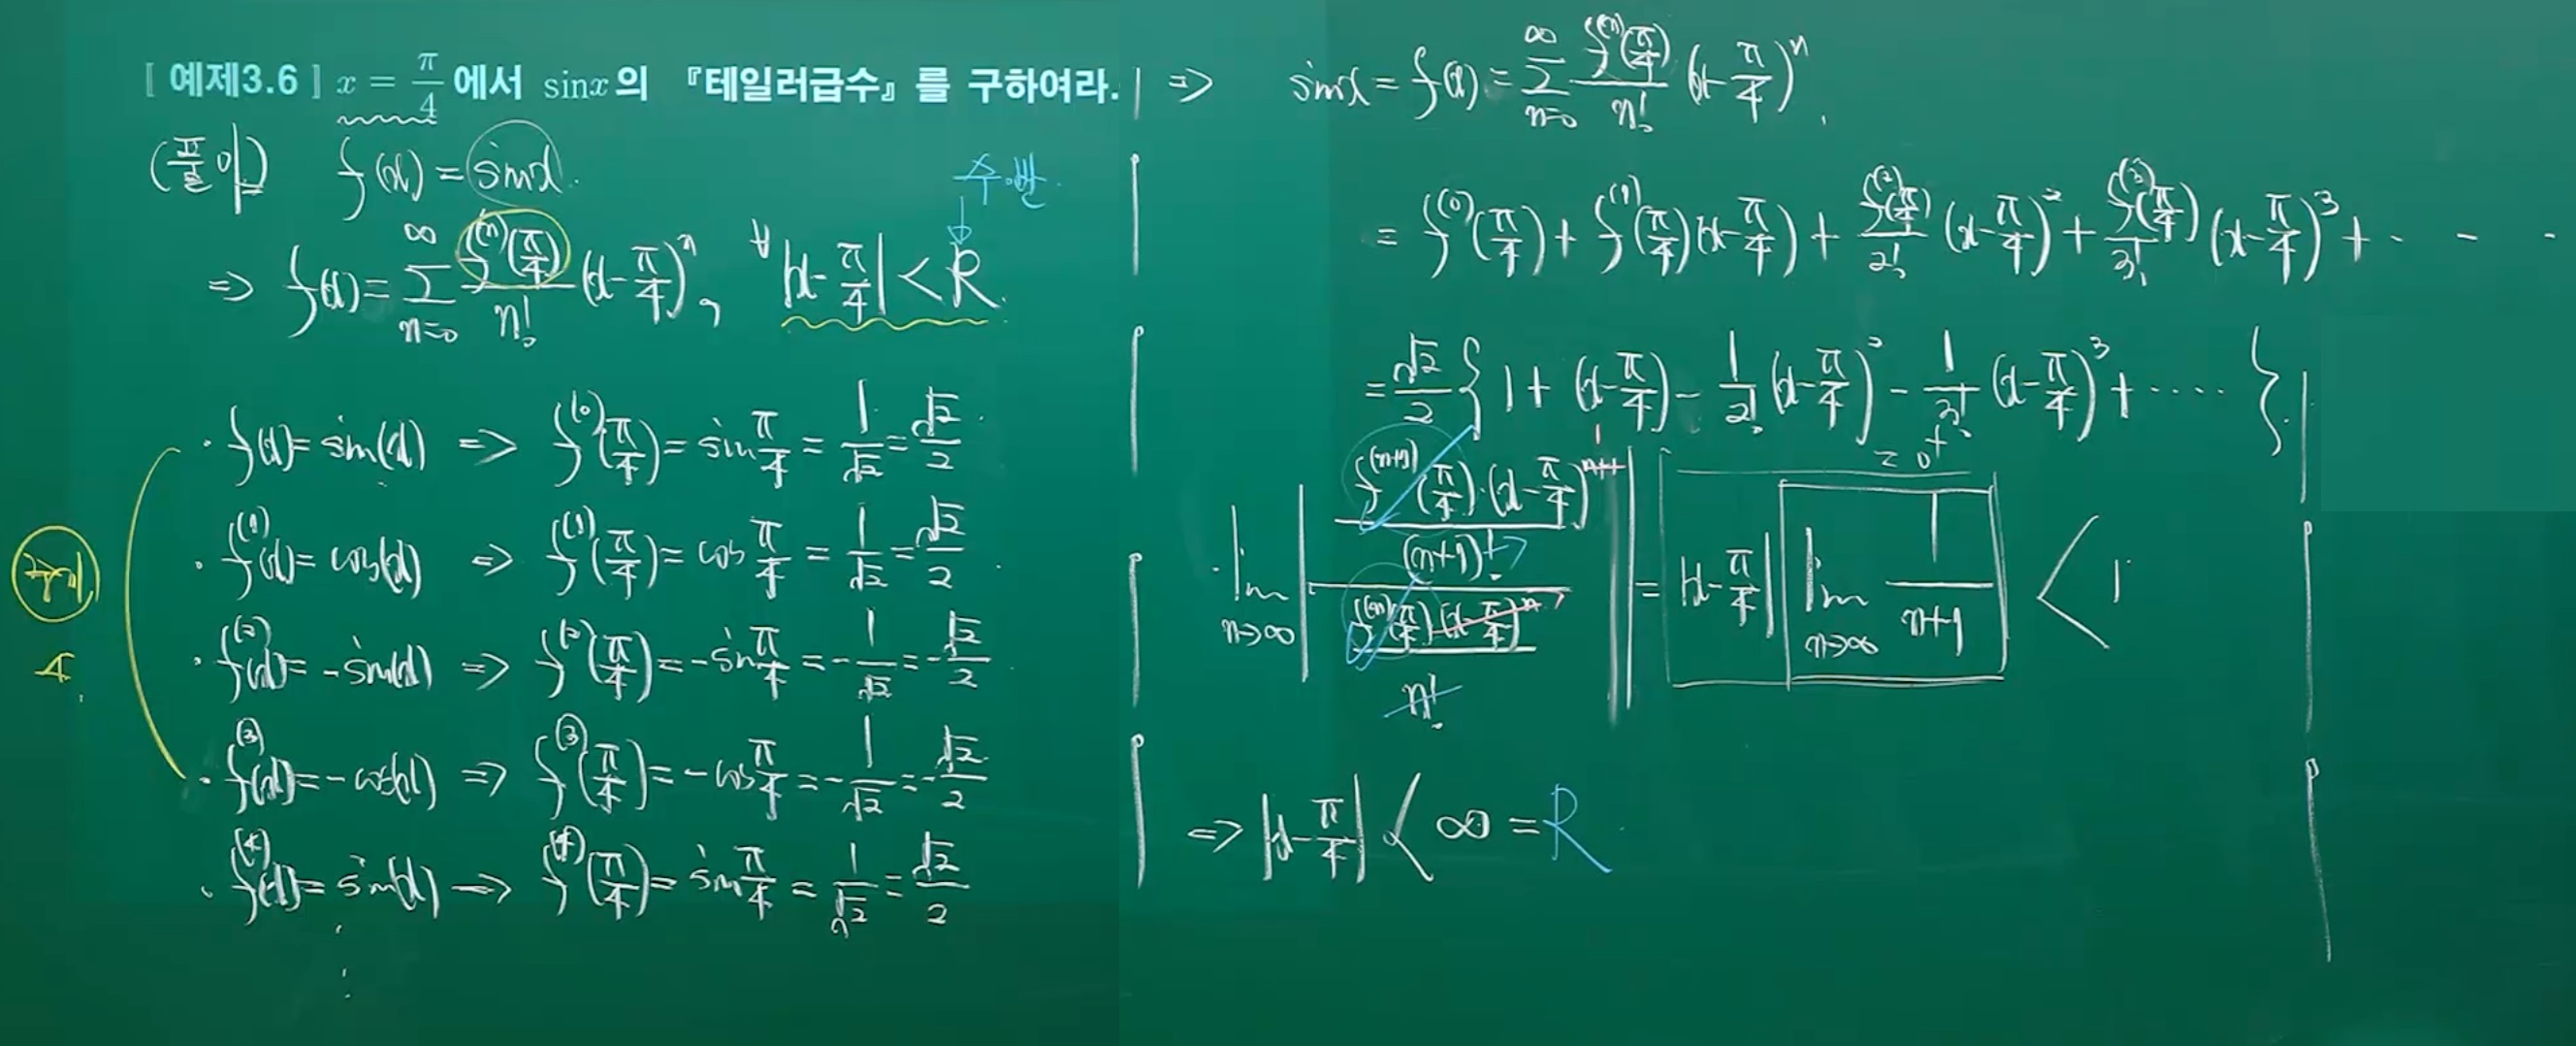 [예제3.6] x = π/4 에서 sinx의 『테일러급수』를 구하여라.
(풀이) f(x) = sinx.
수.반.
↓
⇒ f(x) = ∑_{n=0}^{∞} f⁽ⁿ⁾(π/4)/n! (x-π/4)ⁿ, ∀|x-π/4| < R.
주기
4.
· f(x) = sin(x) ⇒ f⁽⁰⁾(π/4) = sin π/4 = 1/√2 = √2/2.
· f⁽¹⁾(x) = cos(x) ⇒ f⁽¹⁾(π/4) = cos π/4 = 1/√2 = √2/2.
· f⁽²⁾(x) = -sin(x) ⇒ f⁽²⁾(π/4) = -sin π/4 = -1/√2 = -√2/2.
· f⁽³⁾(x) = -cos(x) ⇒ f⁽³⁾(π/4) = -cos π/4 = -1/√2 = -√2/2
· f⁽⁴⁾(x) = sin(x) → f⁽⁴⁾(π/4) = sin π/4 = 1/√2 = √2/2
⋮
⇒ sinx = f(x) = ∑_{n=0}^{∞} f⁽ⁿ⁾(π/4)/n! (x-π/4)ⁿ.
= f⁽⁰⁾(π/4) + f⁽¹⁾(π/4)(x-π/4) + f⁽²⁾(π/4)/2! (x-π/4)² + f⁽³⁾(π/4)/3! (x-π/4)³ + · · ·
= √2/2 { 1 + (x-π/4) - 1/2! (x-π/4)² - 1/3! (x-π/4)³ + ···· }
· lim_{n→∞} | (f⁽ⁿ⁺¹⁾(π/4)·(x-π/4)ⁿ⁺¹/(n+1)!) / (f⁽ⁿ⁾(π/4)(x-π/4)ⁿ/n!) | = |x-π/4| lim_{n→∞} 1/(n+1) < 1
= 0⁺
⇒ |x-π/4| < ∞ = R.